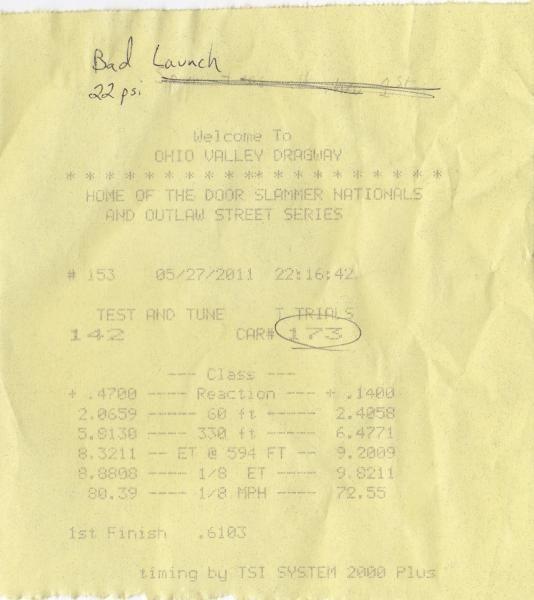 Bad Launch
22 psi
Welcome To
OHIO VALLEY DRAGWAY
* * * * * * * * * ** * * * * * * * * *
HOME OF THE DOOR SLAMMER NATIONALS
AND OUTLAW STREET SERIES
# 153 05/27/2011 22:16:42
TEST AND TUNE T TRIALS
142 CAR# 173
--- Class ---
+ .4700 ---- Reaction --- + .1400
2.0659 ----- 60 ft ---- 2.4058
5.8130 ---- 330 ft ---- 6.4771
8.3211 -- ET @ 594 FT -- 9.2009
8.8808 ---- 1/8 ET ---- 9.8211
80.39 ---- 1/8 MPH ---- 72.55
1st Finish .6103
timing by TSI SYSTEM 2000 Plus